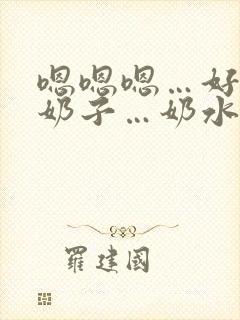 嗯嗯嗯…好
奶子…奶水
羅建國